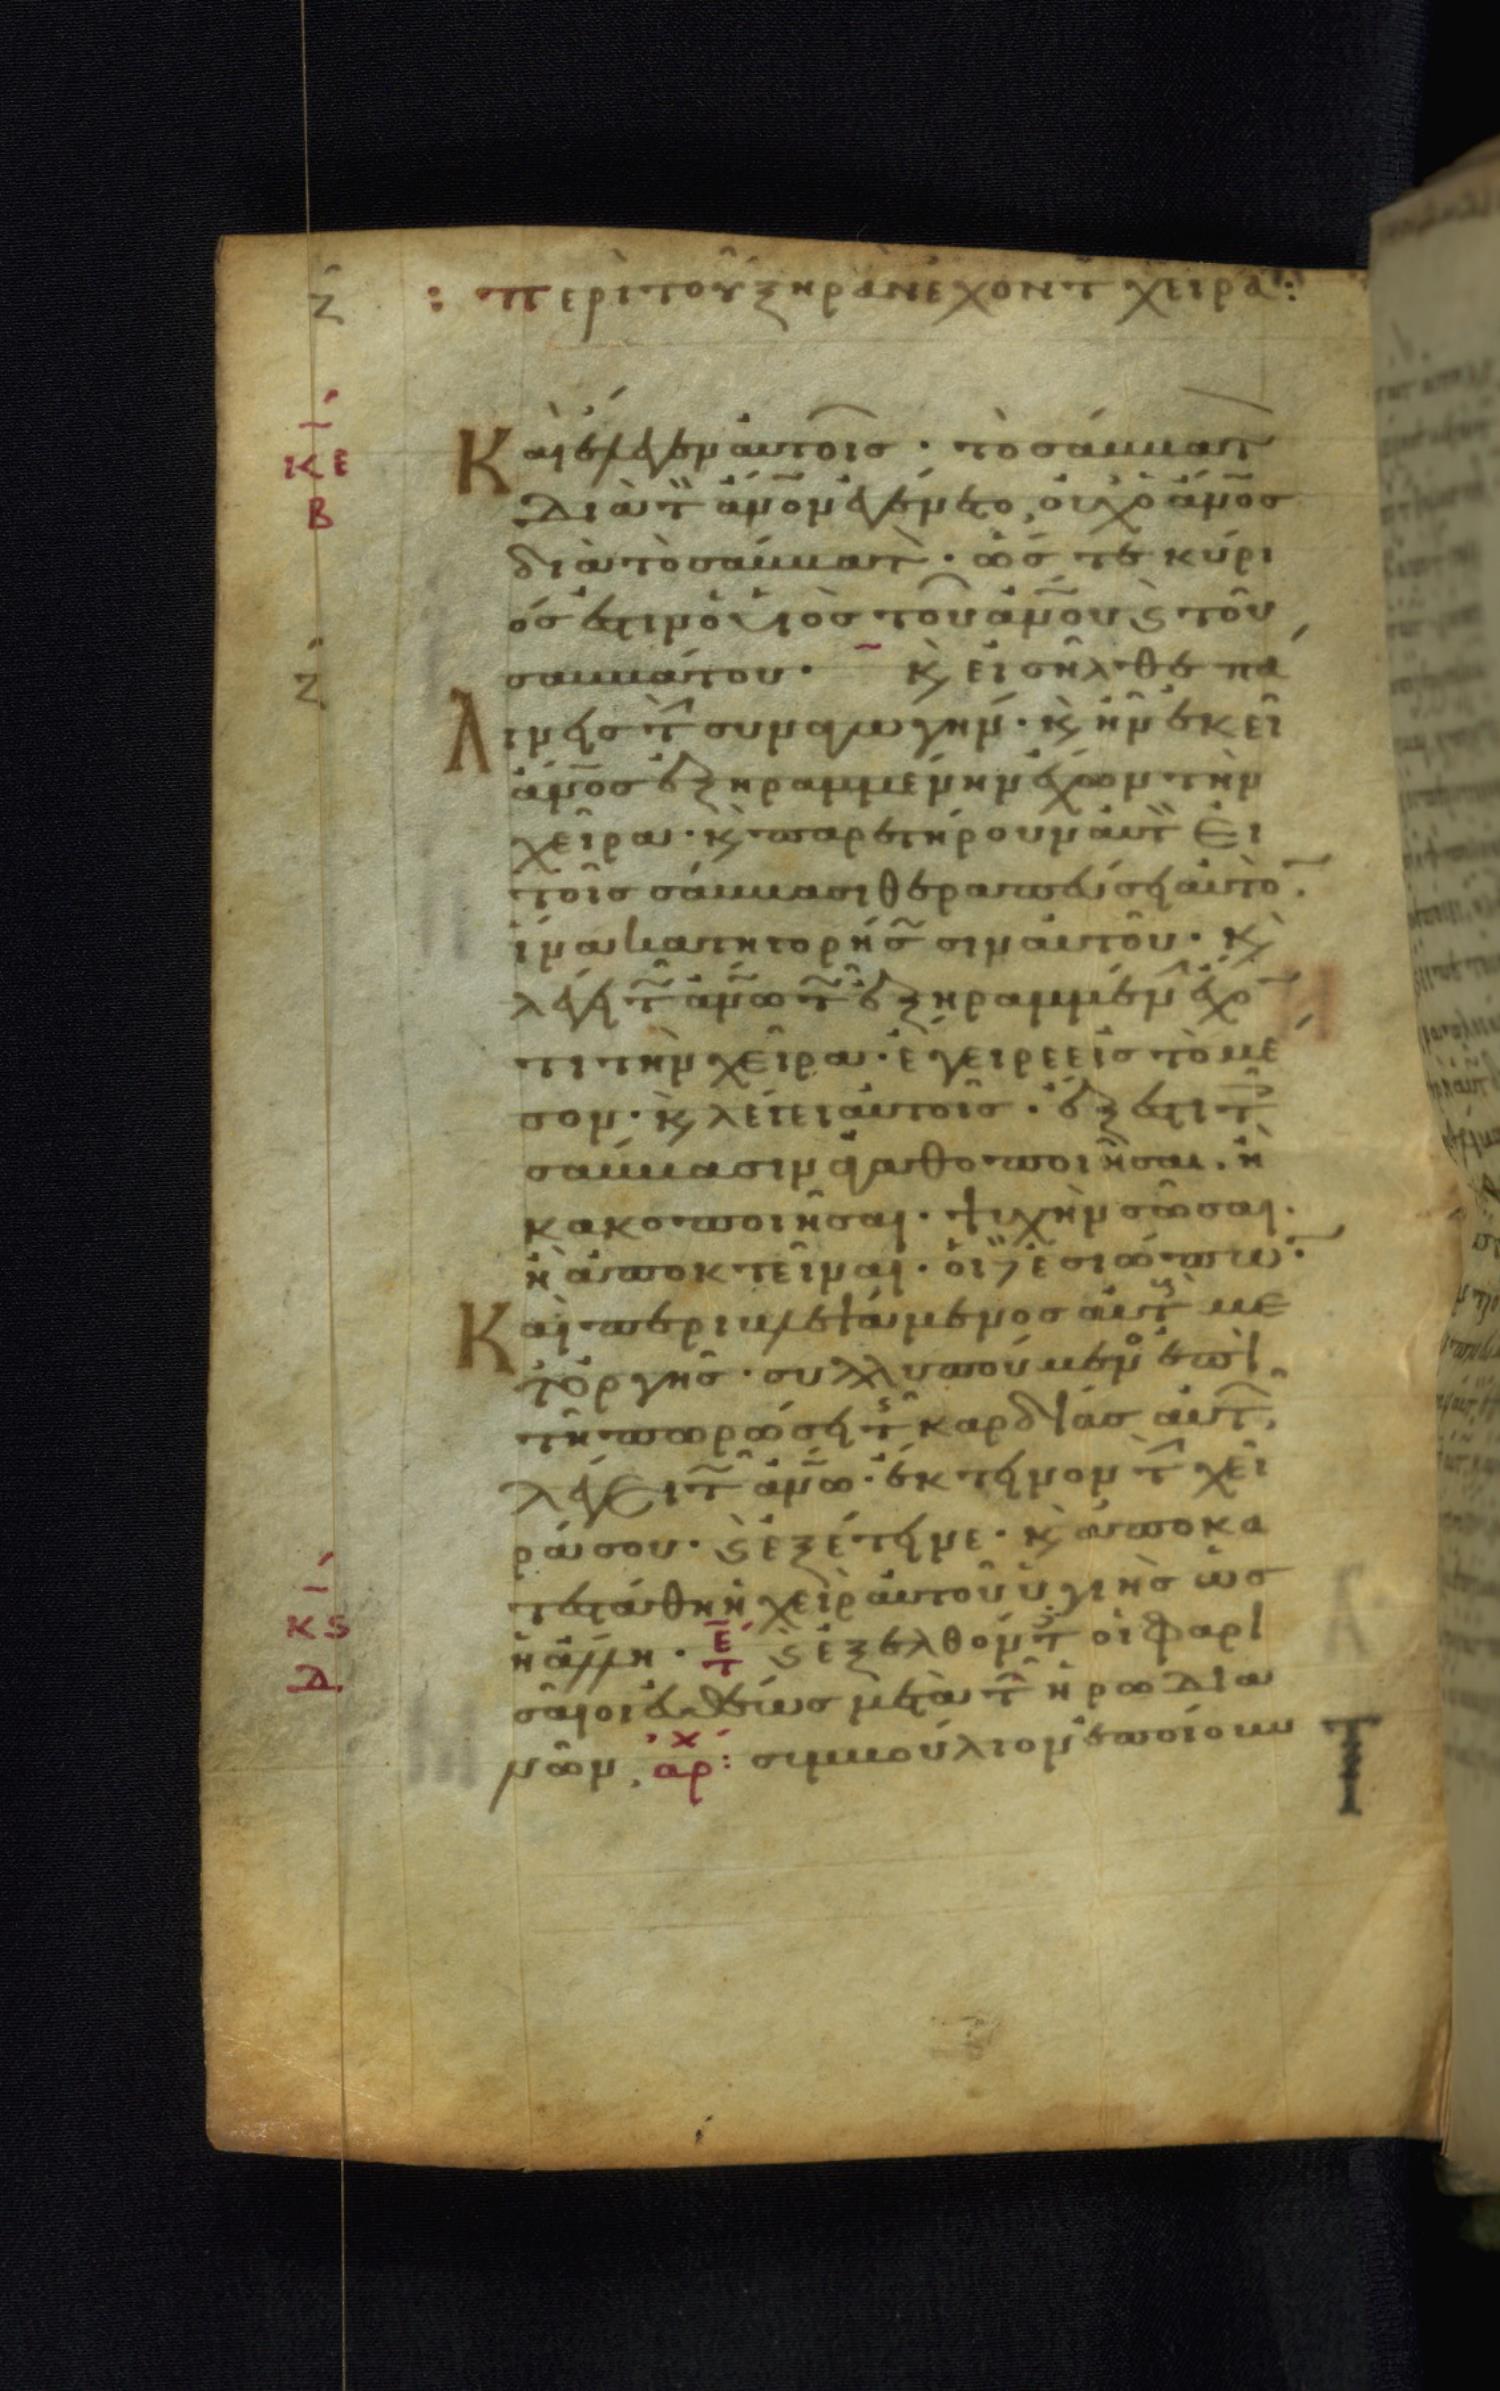 ζ
: περὶ τοῦ ξηρὰν ἔχοντ χεῖρα :
ΚΕ
Β
Και ἔλεγεν αὐτοῖς · τὸ σάββατ
διὰ τ ἄνον ἐγένετο, οὐχ ὁ ἄνος
διὰ τὸ σάββατ · ὥστε κύρι
ός ἐστιν ὁ υἱὸς τοῦ ἀνου κ τοῦ
σαββάτου · κ εἰσῆλθε πά
ζ
λιν εἰς τ συναγωγήν · κ ἦν ἐκεῖ
ἄνος ἐξηραμμένην ἔχων τὴν
χεῖρα · κ παρετήρουν αὐτ εἰ
τοῖς σάββασι θεραπεύσει αὐτό
ἵνα κατηγορήσ σιν αὐτοῦ · κ
λέγει τ ἀνω τ ἐξηραμμέν ἔχο
τι τὴν χεῖρα · ἔγειρε εἰς τὸ μέ
σον · κ λέγει αὐτοῖς · ἔξεστι τ
σάββασιν ἀγαθοποιῆσαι · ἢ
κακοποιῆσαι · ψυχὴν σῶσαι ·
ἢ ἀποκτεῖναι · οἱ δὲ ἐσιώπω
Και περιβλεψάμενος αὐτ με
τ ὀργῆς · συλλυπούμεν ἐπὶ
τῇ πωρώσει τ καρδίας αὐτ,
λέγει τ ἀνω · ἔκτεινον τ χεῖ
ρά σου · κ ἐξέτεινε · κ ἀποκα
τεστάθη ἡ χεὶρ αὐτοῦ ὑγιὴς ὡς
ΚS
Δ
ἡ ἄλλη · κ ἐξελθόντ οἱ φαρι
σαῖοι εὐθέως μετὰ τ ἡρωδια
νῶν, αρχ : συμβούλιον ἐποίουν